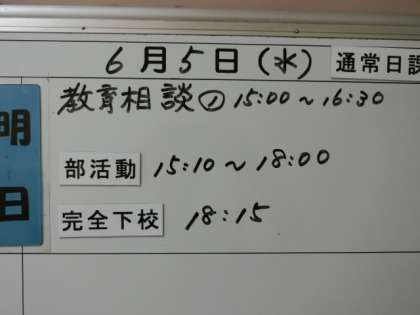 6月5日(水) 通常日課
明日
教育相談① 15:00～16:30
部活動 15:10～18:00
完全下校 18:15